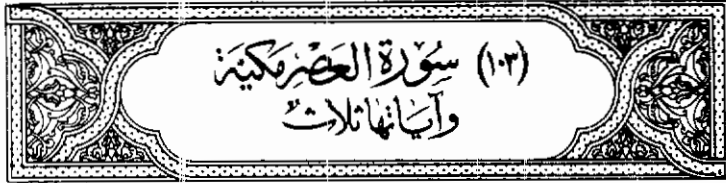 (١٠٣) سُورَة العَصْرِ مَكيَّة
وَآيَاتهَا ثلاث